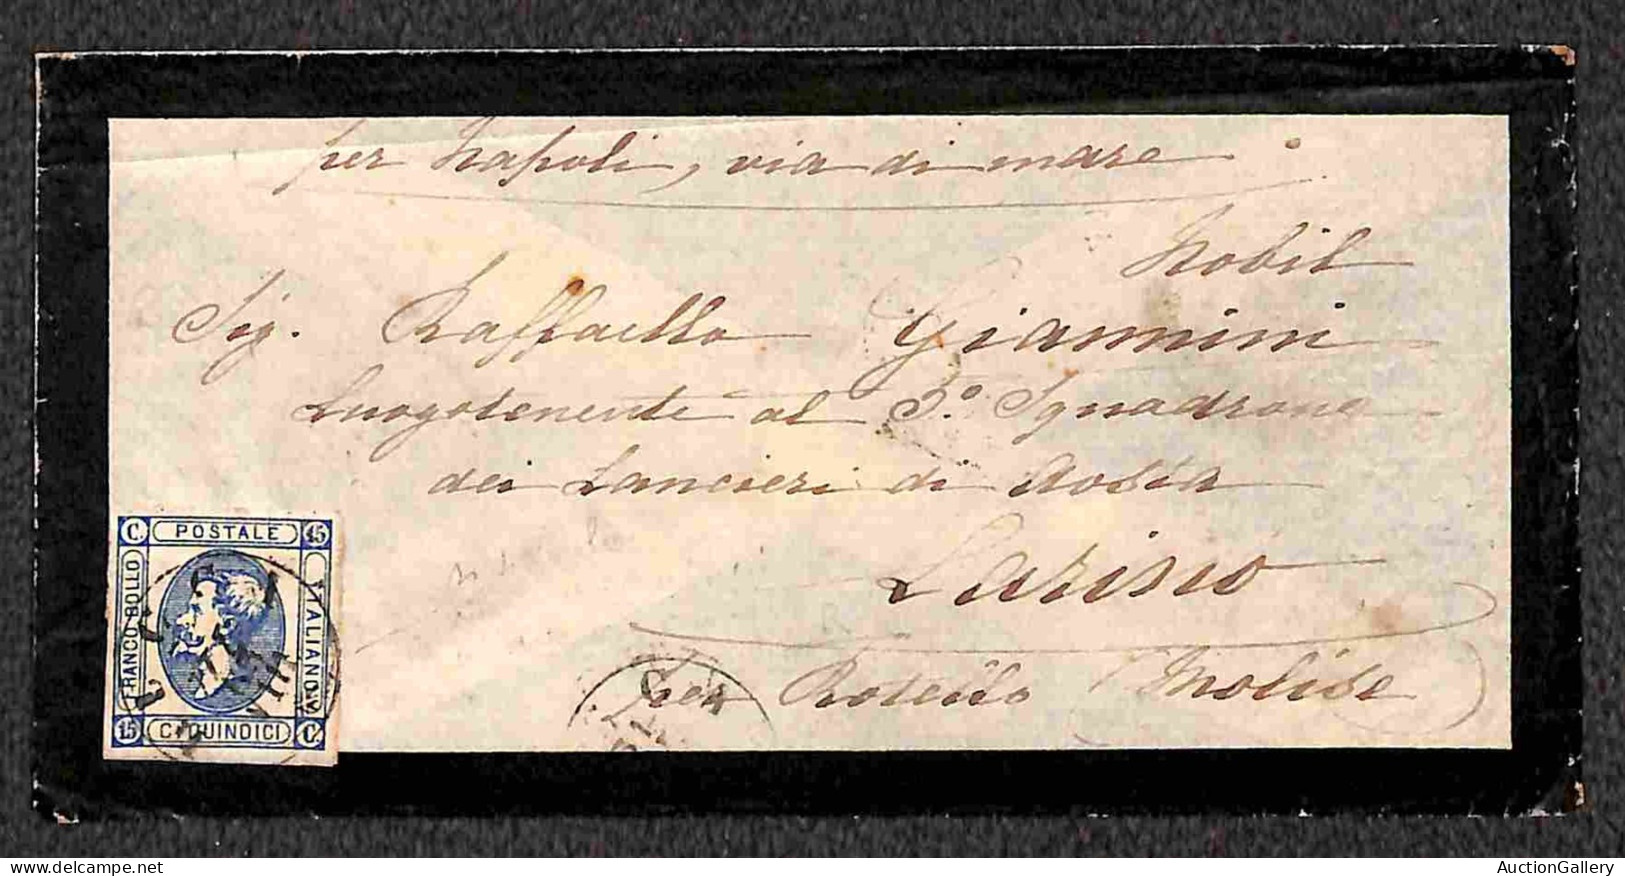 per Napoli, via di mare.
Nobil
Sig. Raffaello Giannini
Luogotenente al 3º Squadrone
dei Lancieri di Aosta
Larino
per Rotello Molise
C POSTALE 15
FRANCO BOLLO
ITALIANO
15 C. QUINDICI C
AuctionGallery